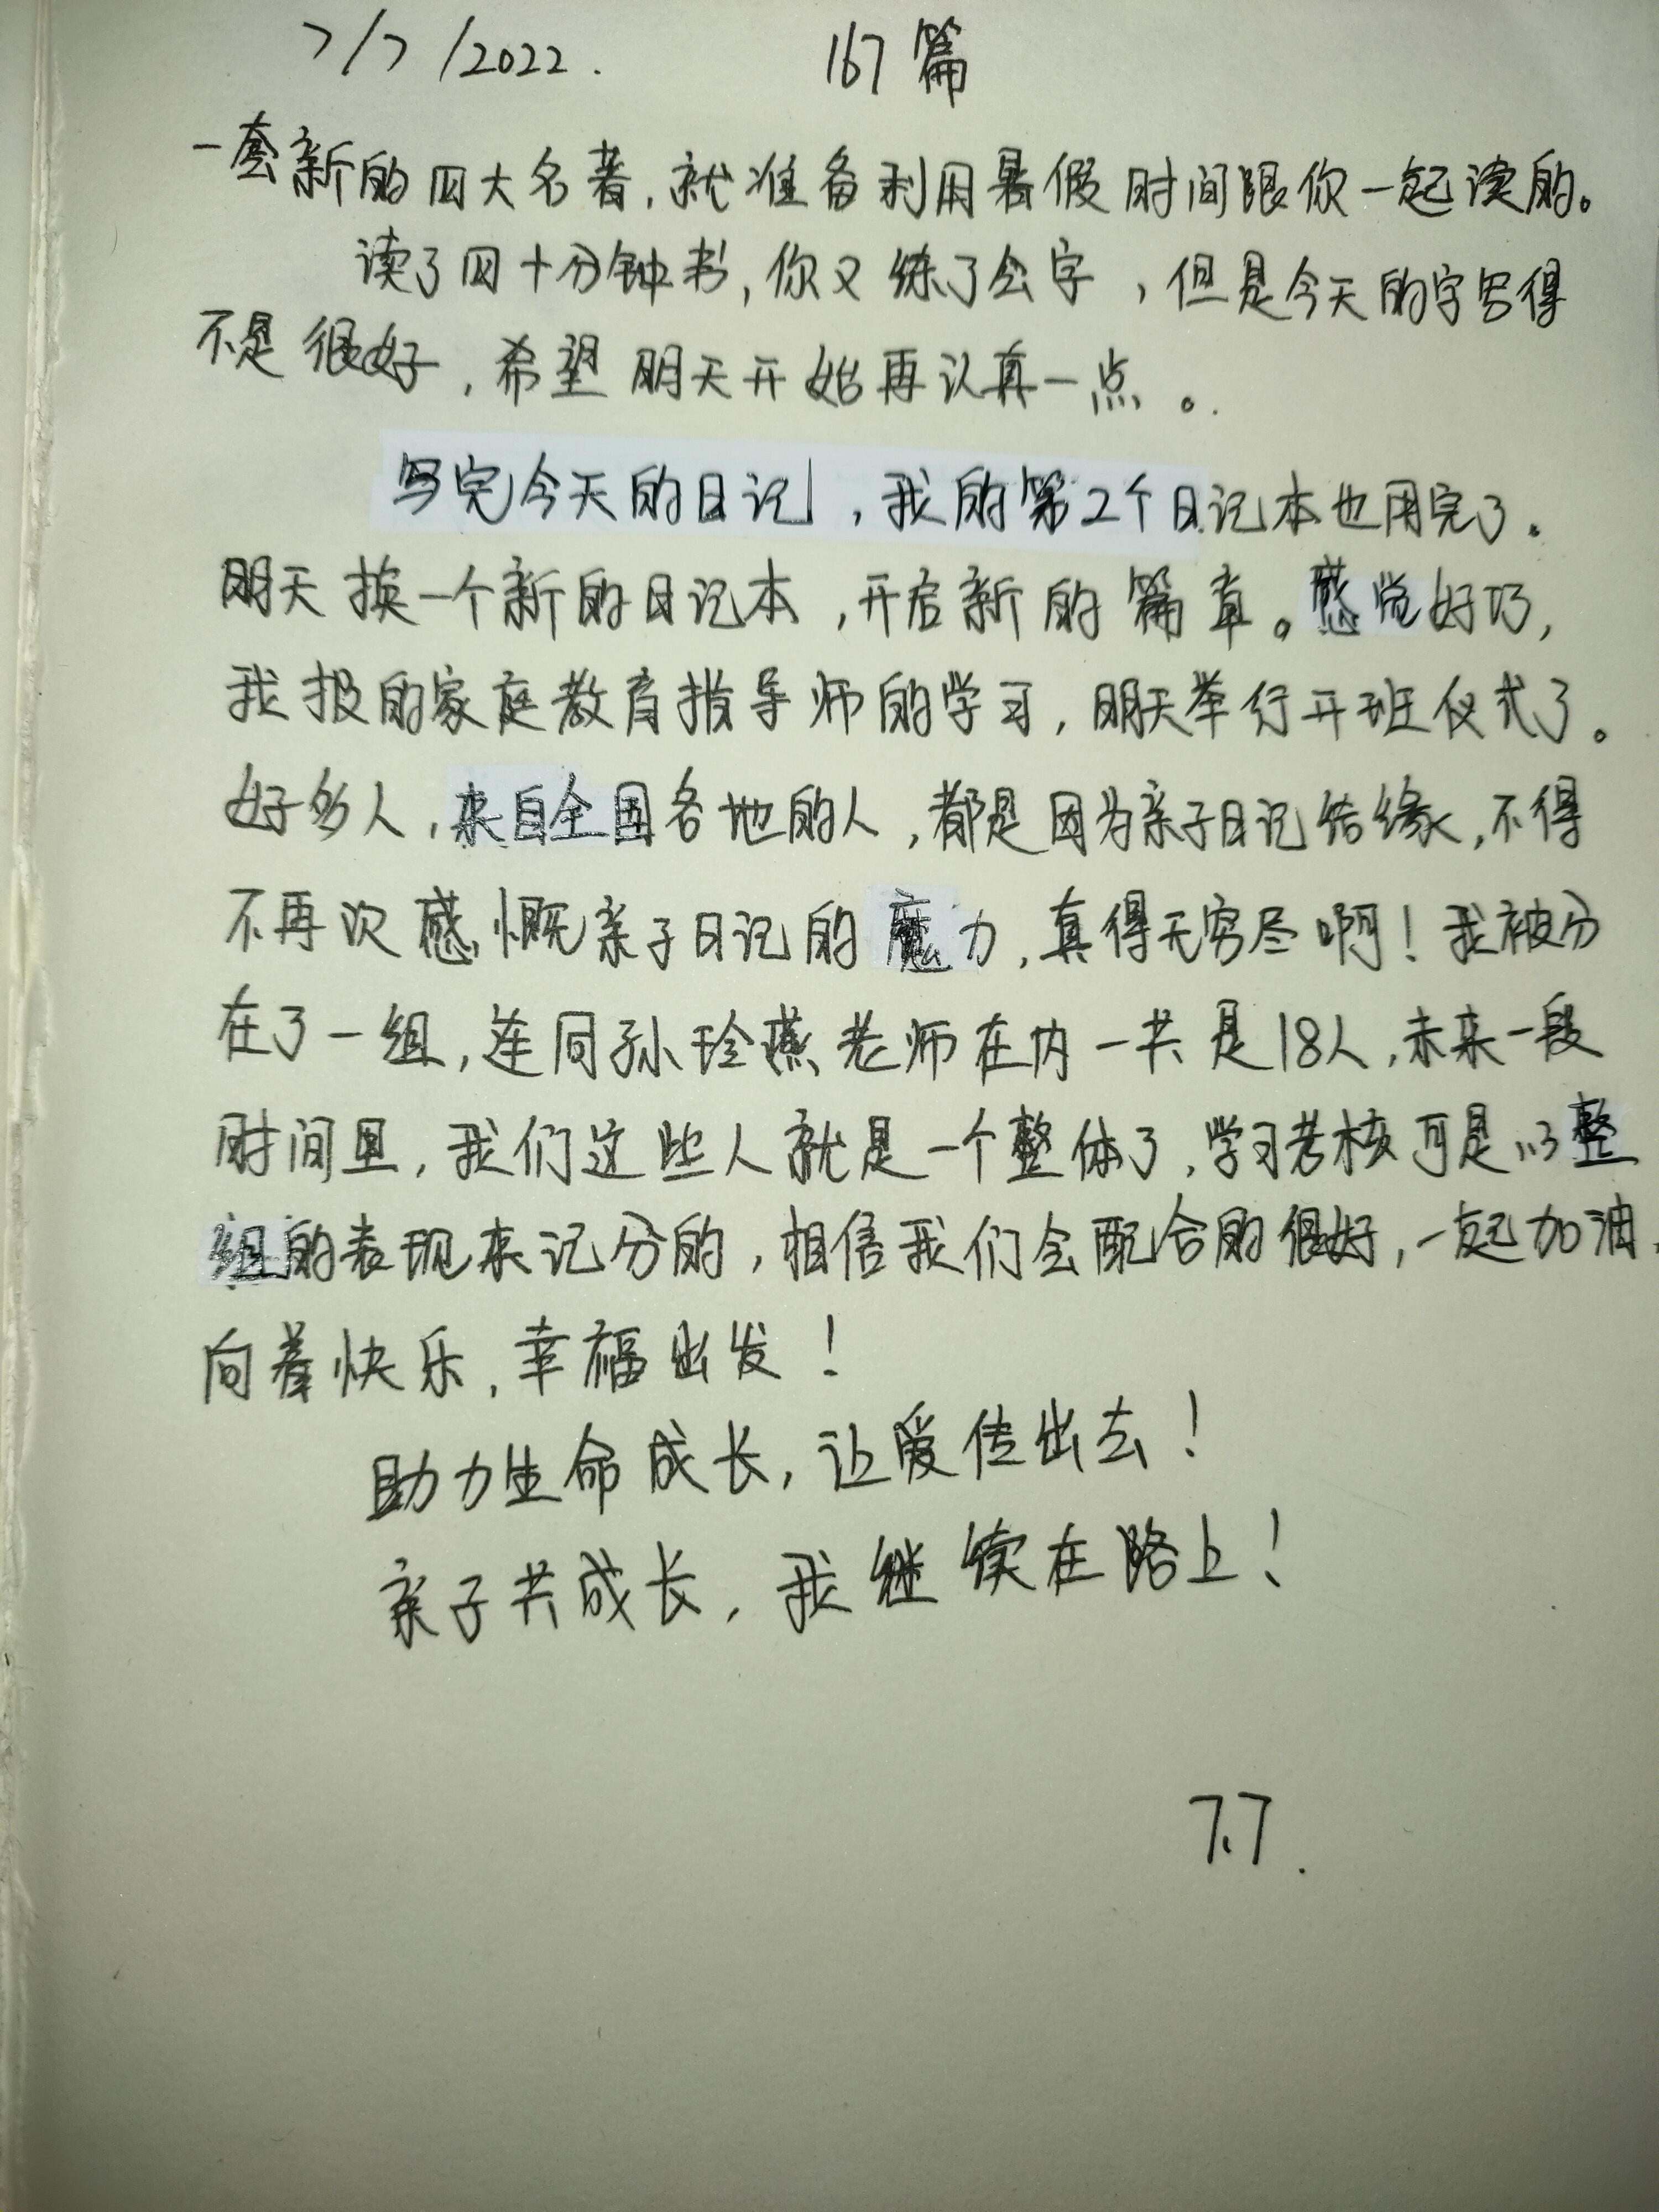 7/7/2022. 167篇
一套新的四大名著，就准备利用暑假时间跟你一起读的。
读了四十分钟书，你又练了会字，但是今天的字写得
不是很好，希望明天开始再认真一点。
写完今天的日记，我的第2个日记本也用完了。
明天换一个新的日记本，开启新的篇章。感觉好巧，
我报的家庭教育指导师的学习，明天举行开班仪式了。
好多人，来自全国各地的人，都是因为亲子日记结缘，不得
不再次感慨亲子日记的魔力，真得无穷尽啊！我被分
在了一组，连同孙玲燕老师在内一共是18人，未来一段
时间里，我们这些人就是一个整体了，学习考核可是以整
组的表现来记分的，相信我们会配合的很好，一起加油，
向着快乐，幸福出发！
助力生命成长，让爱传出去！
亲子共成长，我继续在路上！
7.7.